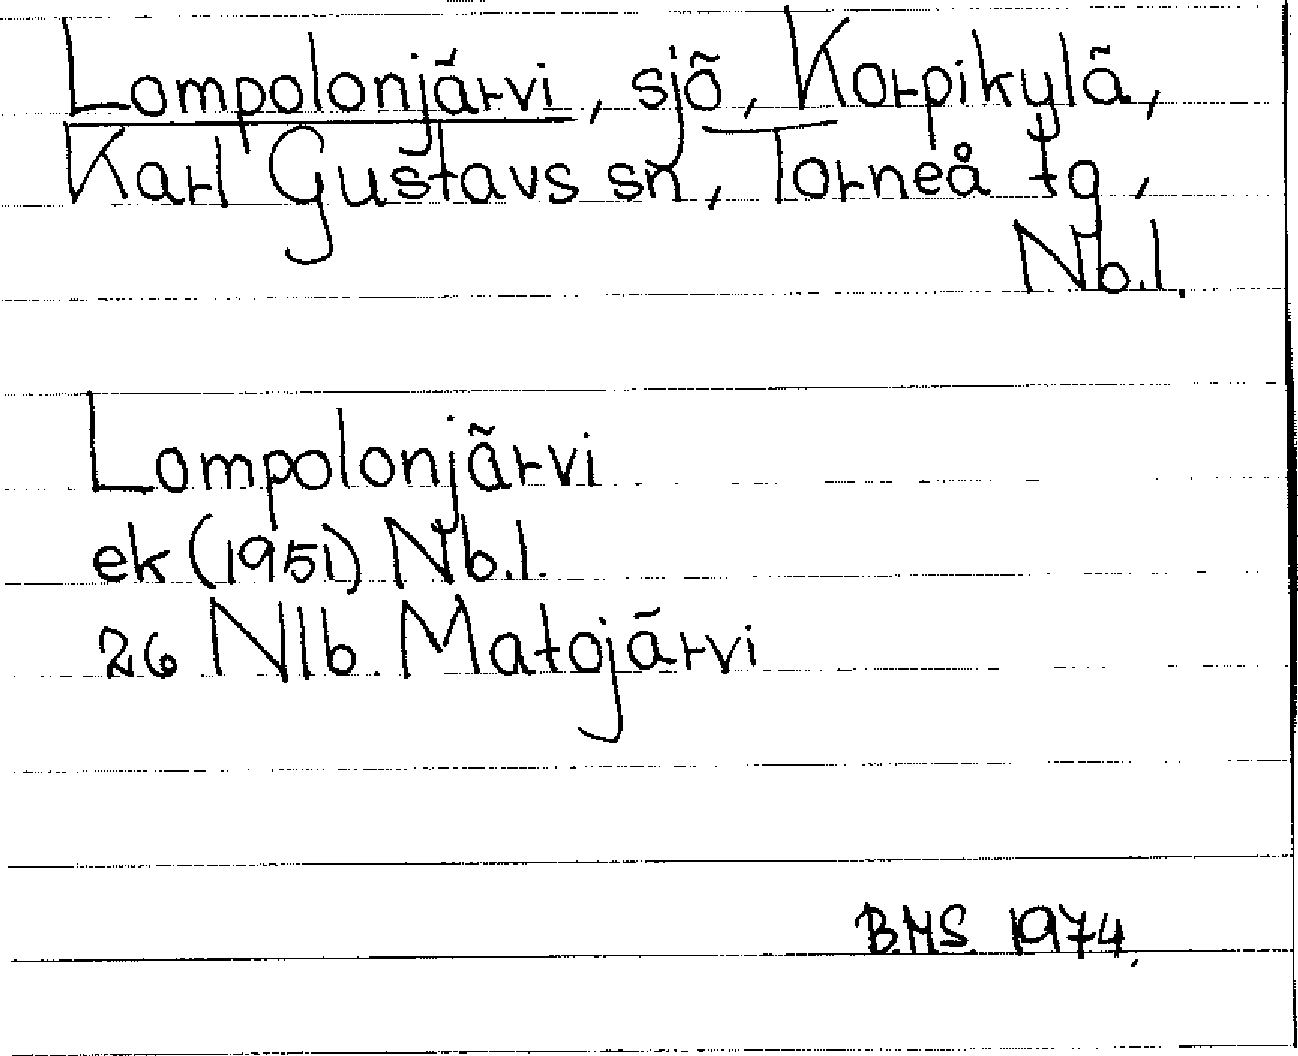 Lompolonjärvi, sjö, Korpikylä,
Karl Gustavs sn, Torneå tg,
Nb.l.
Lompolonjärvi
ek (1951) Nb.l.
26 Nlb Matojärvi
BMS 1974.